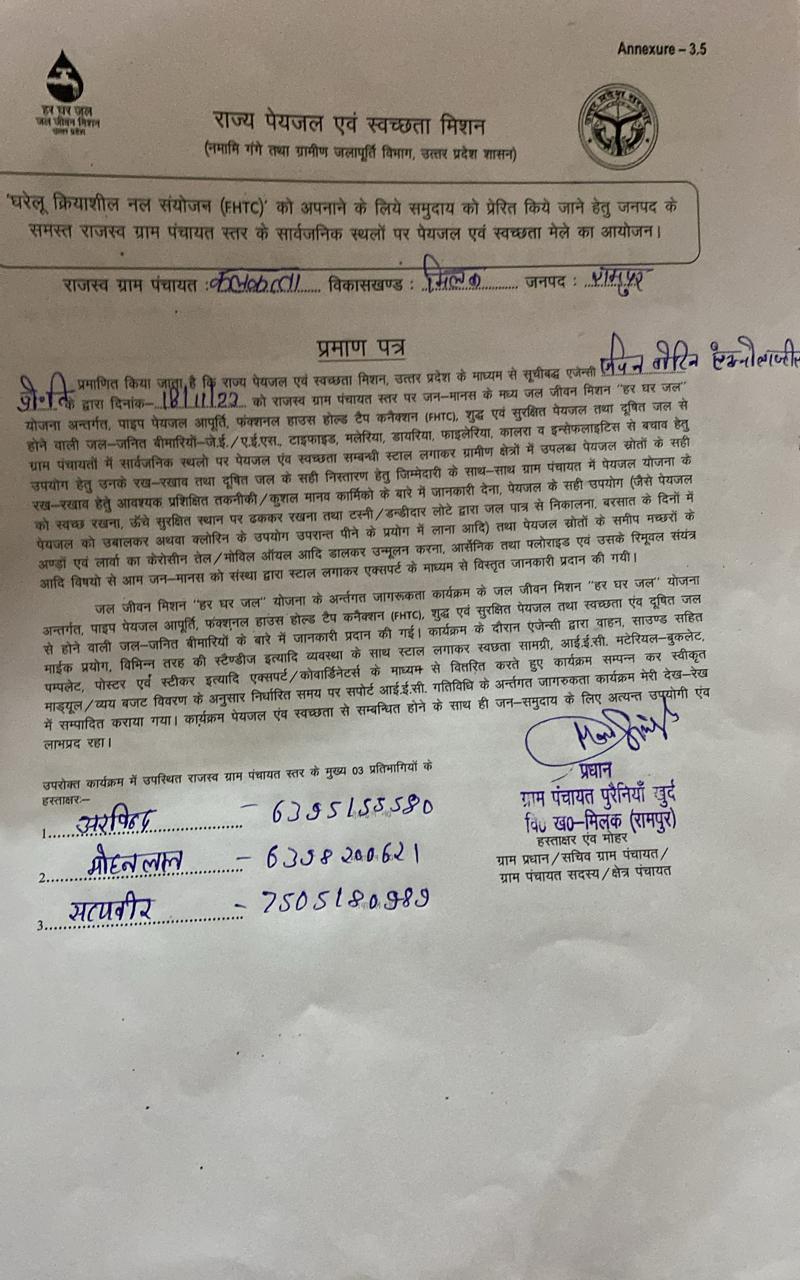 Annexure – 3.5
हर घर जल
जल जीवन मिशन
उत्तर प्रदेश
उत्तर प्रदेश सरकार
राज्य पेयजल एवं स्वच्छता मिशन
(नमामि गंगे तथा ग्रामीण जलापूर्ति विभाग, उत्तर प्रदेश शासन)
'घरेलू क्रियाशील नल संयोजन (FHTC)' को अपनाने के लिये समुदाय को प्रेरित किये जाने हेतु जनपद के
समस्त राजस्व ग्राम पंचायत स्तर के सार्वजनिक स्थलों पर पेयजल एवं स्वच्छता मेले का आयोजन।
राजस्व ग्राम पंचायत : कलकत्ता विकासखण्ड : मिलक जनपद : रामपुर
प्रमाण पत्र
प्रमाणित किया जाता है कि राज्य पेयजल एवं स्वच्छता मिशन, उत्तर प्रदेश के माध्यम से सूचीबद्ध एजेन्सी
के द्वारा दिनांक– 18/11/22 को राजस्व ग्राम पंचायत स्तर पर जन-मानस के मध्य जल जीवन मिशन "हर घर जल"
योजना अन्तर्गत, पाइप पेयजल आपूर्ति, फंक्शनल हाउस होल्ड टैप कनैक्शन (FHTC), शुद्ध एवं सुरक्षित पेयजल तथा दूषित जल से
होने वाली जल-जनित बीमारियों-जे.ई./ए.ई.एस., टाइफाइड, मलेरिया, डायरिया, फाइलेरिया, कालरा व इन्सेफलाइटिस से बचाव हेतु
ग्राम पंचायतों में सार्वजनिक स्थलो पर पेयजल एंव स्वच्छता सम्बन्धी स्टाल लगाकर ग्रामीण क्षेत्रों में उपलब्ध पेयजल स्रोतों के सही
उपयोग हेतु उनके रख-रखाव तथा दूषित जल के सही निस्तारण हेतु जिम्मेदारी के साथ-साथ ग्राम पंचायत में पेयजल योजना के
रख-रखाव हेतु आवश्यक प्रशिक्षित तकनीकी/कुशल मानव कार्मिको के बारे में जानकारी देना, पेयजल के सही उपयोग (जैसे पेयजल
को स्वच्छ रखना, ऊँचे सुरक्षित स्थान पर ढककर रखना तथा टस्नी/डन्डीदार लोटे द्वारा जल पात्र से निकालना, बरसात के दिनों में
पेयजल को उबालकर अथवा क्लोरिन के उपयोग उपरान्त पीने के प्रयोग में लाना आदि) तथा पेयजल स्रोतों के समीप मच्छरों के
अण्ड़ों एवं लार्वा का केरोसीन तेल/मोविल ऑयल आदि डालकर उन्मूलन करना, आर्सेनिक तथा फ्लोराइड एवं उसके रिमूवल संयंत्र
आदि विषयो से आम जन-मानस को संस्था द्वारा स्टाल लगाकर एक्सपर्ट के माध्यम से विस्तृत जानकारी प्रदान की गयी।
जल जीवन मिशन "हर घर जल" योजना के अर्न्तगत जागरूकता कार्यक्रम के जल जीवन मिशन "हर घर जल" योजना
अन्तर्गत, पाइप पेयजल आपूर्ति, फंक्शनल हाउस होल्ड टैप कनैक्शन (FHTC), शुद्ध एवं सुरक्षित पेयजल तथा स्वच्छता एंव दूषित जल
से होने वाली जल-जनित बीमारियों के बारे में जानकारी प्रदान की गई। कार्यक्रम के दौरान एजेन्सी द्वारा वाहन, साउण्ड सहित
माईक प्रयोग, विभिन्न तरह की स्टैण्डीज इत्यादि व्यवस्था के साथ स्टाल लगाकर स्वछता सामग्री, आई.ई.सी. मटेरियल-बुकलेट,
पम्पलेट, पोस्टर एवं स्टीकर इत्यादि एक्सपर्ट/कोवार्डिनेटर्स के माध्यम से वितरित करते हुए कार्यक्रम सम्पन्न कर स्वीकृत
माड्यूल/व्यय बजट विवरण के अनुसार निर्धारित समय पर सपोर्ट आई.ई.सी. गतिविधि के अर्न्तगत जागरुकता कार्यक्रम मेरी देख-रेख
में सम्पादित कराया गया। कार्यक्रम पेयजल एंव स्वच्छता से सम्बन्धित होने के साथ ही जन-समुदाय के लिए अत्यन्त उपयोगी एंव
लाभप्रद रहा।
उपरोक्त कार्यक्रम में उपस्थित राजस्व ग्राम पंचायत स्तर के मुख्य 03 प्रतिभागियों के
हस्ताक्षरः–
1. अरविन्द्र – 6395155580
2. मोहनलाल – 6398200621
3. सत्यवीर – 7505180989
प्रधान
ग्राम पंचायत पुरैनियाँ खुर्द
वि० ख०-मिलक (रामपुर)
हस्ताक्षर एंव मोहर
ग्राम प्रधान/सचिव ग्राम पंचायत/
ग्राम पंचायत सदस्य/क्षेत्र पंचायत